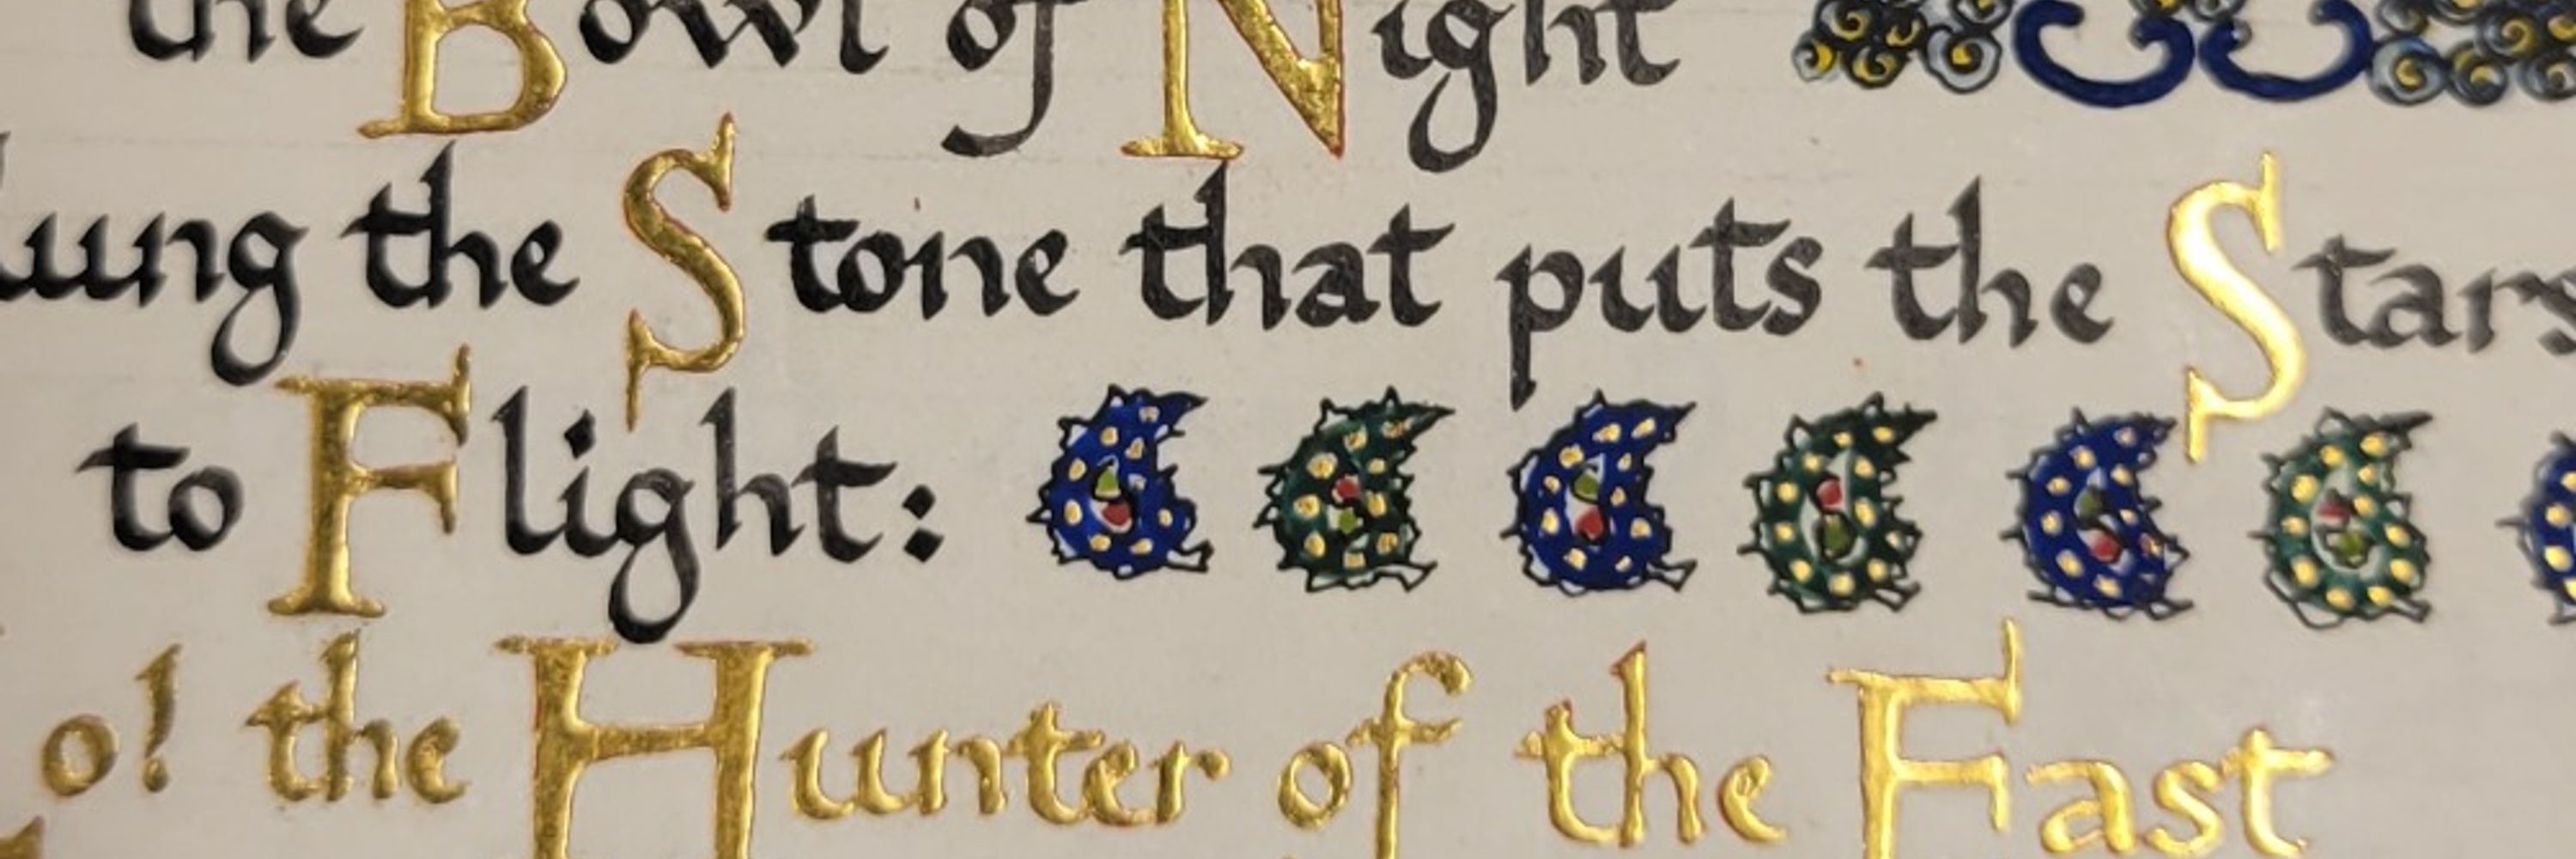 the Bowl of Night
lung the Stone that puts the Stars
to Flight:
o! the Hunter of the East